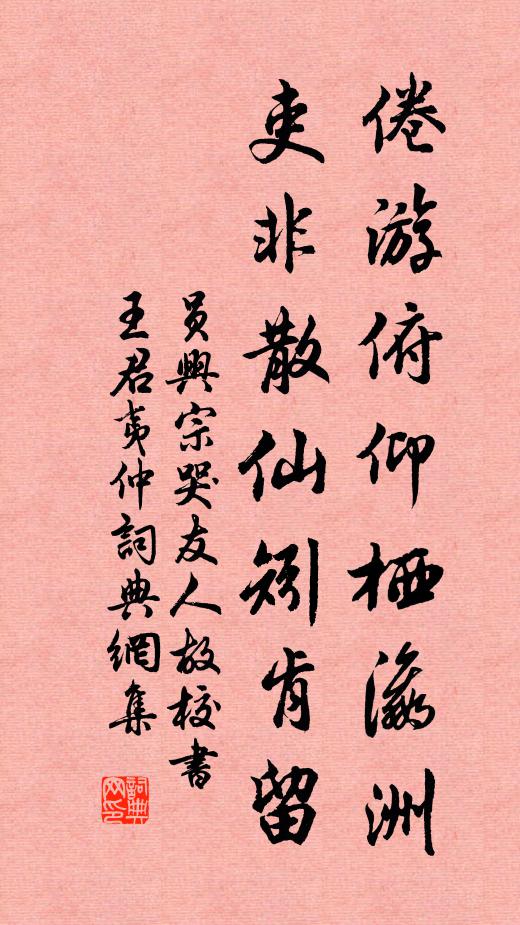 倦游俯仰栖瀛洲
吏非散仙矧肯留
员興宗哭友人故校書
王君夷仲詞典網集
詞典網印